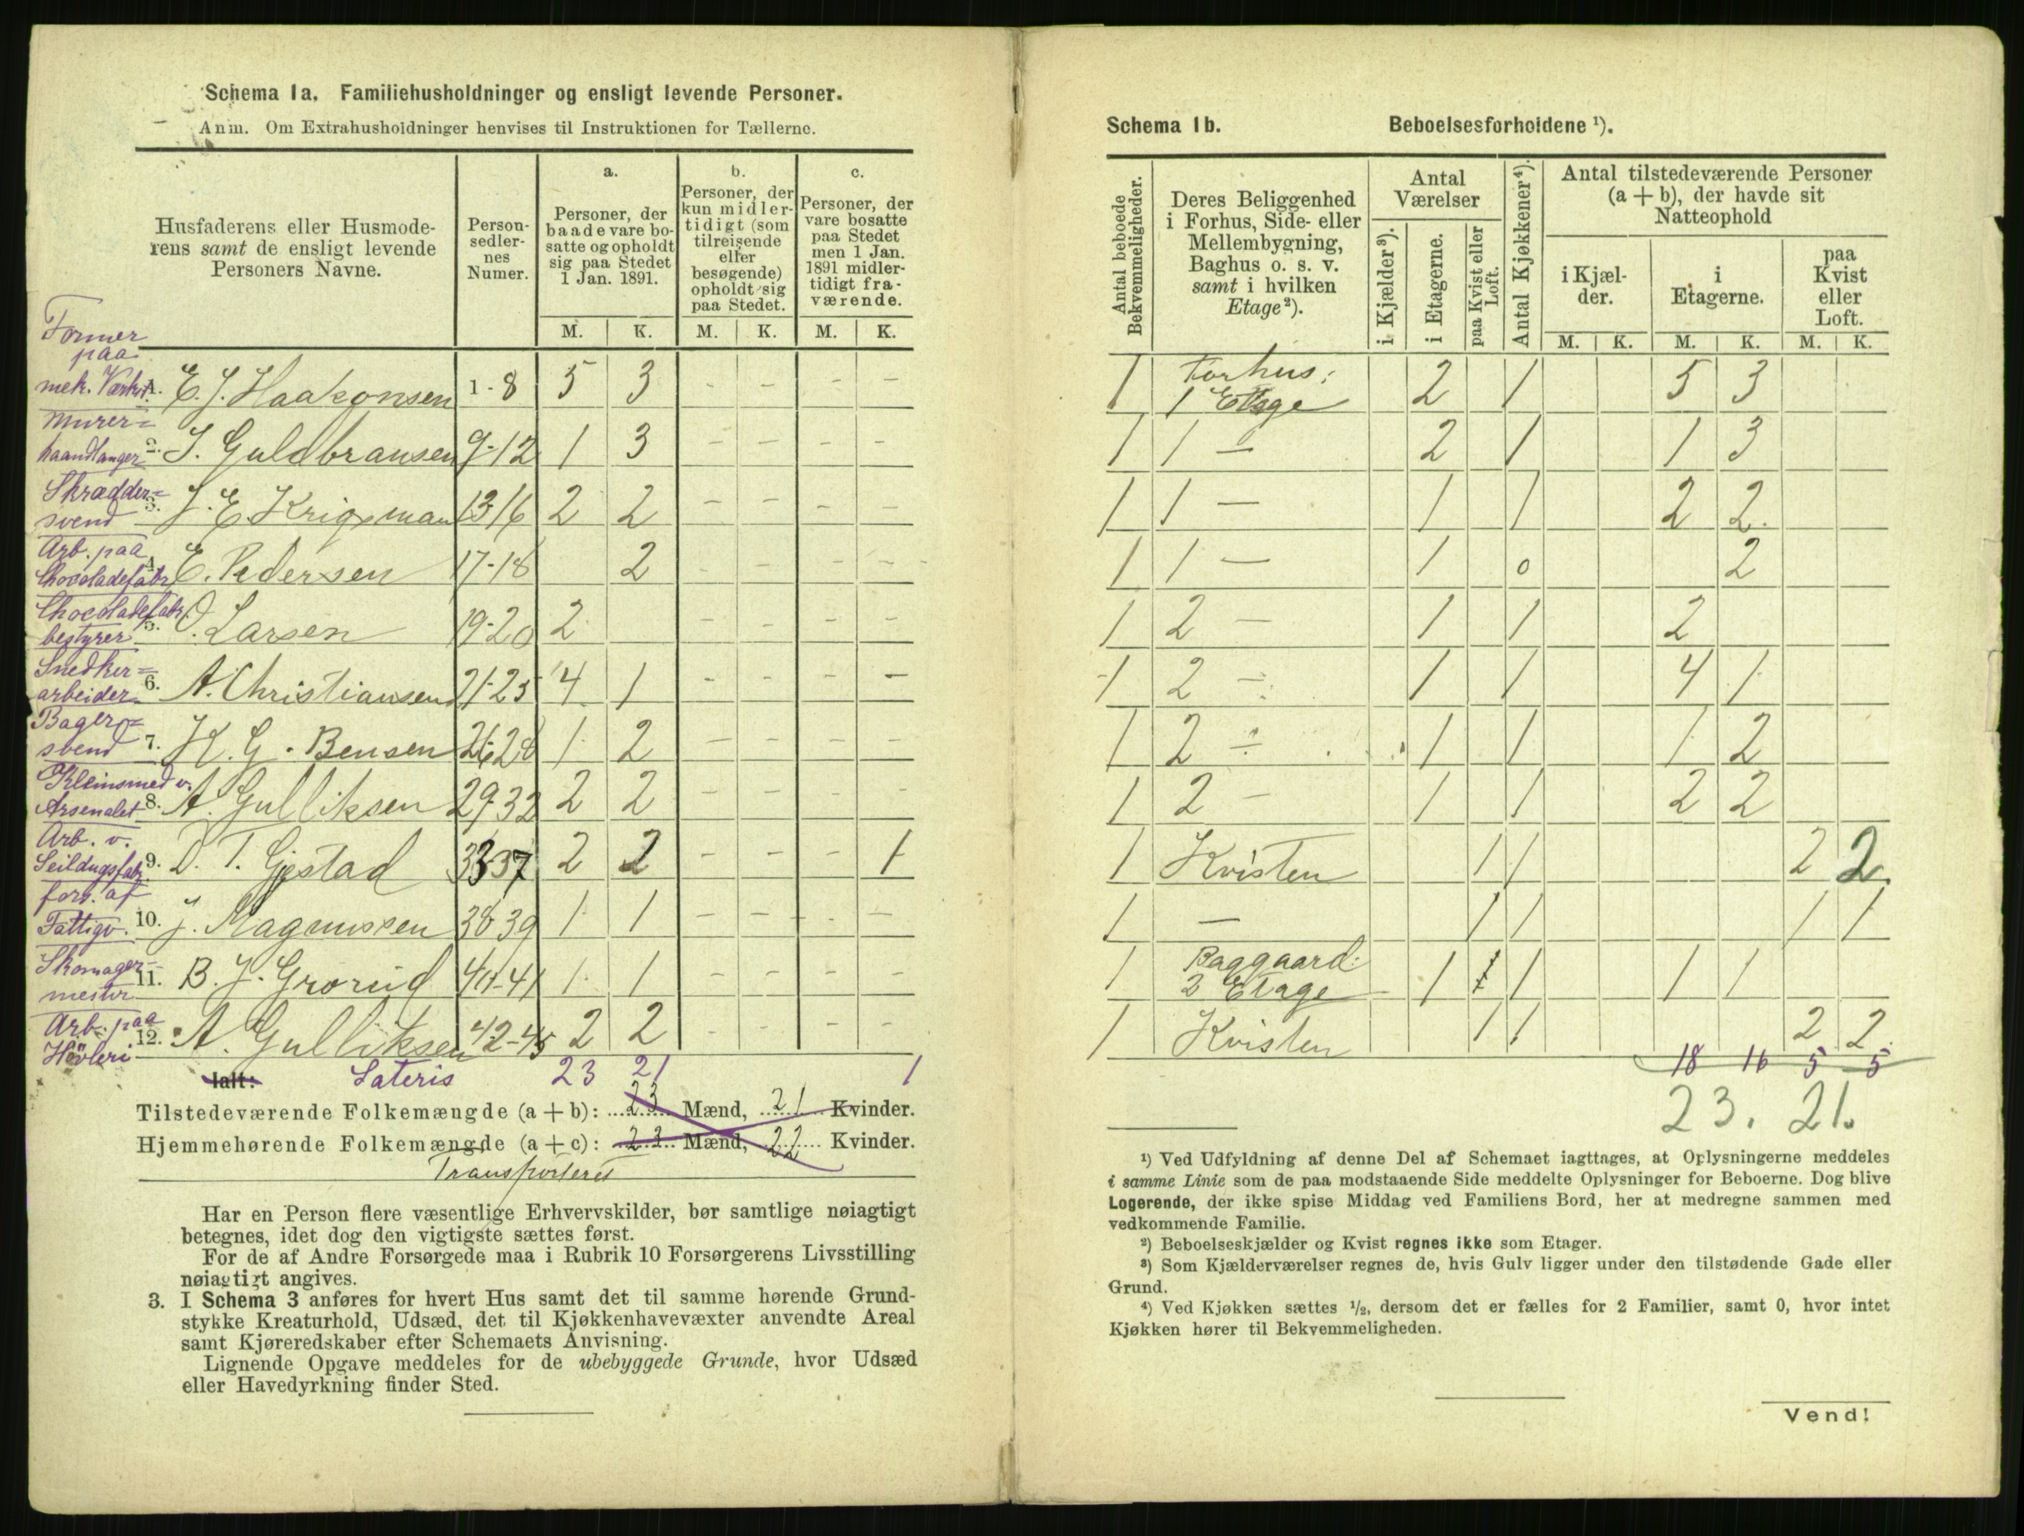 Schema 1a. Familiehusholdninger og ensligt levende Personer.
Anm. Om Extrahusholdninger henvises til Instruktionen for Tællerne.
Husfaderens eller Husmode-
rens samt de ensligt levende
Personers Navne.
Person-
sedler-
nes
Numer.
a.
Personer, der
baade vare bo-
satte og opholdt
sig paa Stedet
1 Jan. 1891.
b.
Personer, der
kun midler-
tidigt (som
tilreisende
eller
besøgende)
opholdt sig
paa Stedet.
c.
Personer, der
vare bosatte
paa Stedet
men 1 Jan.
1891 midler-
tidigt fra-
værende.
M. K. M. K. M. K.
Former
paa
mek. Værkst. 1. E. J. Haakonsen 1-8 5 3 - - - -
Murer=
haandlanger 2. J. Guldbransen 9-12 1 3 - - - -
Skrædder=
svend 3. J. E. Krigsman 13-16 2 2 - - - -
Arb. paa
Chocoladefabr. 4. E. Pedersen 17-18 2 - - - -
Chocoladefabr.
bestyrer 5. O. Larsen 19-20 2 - - - -
Snedker=
arbeider 6. A. Christiansen 21-25 4 1 - - - -
Bager=
svend 7. K. G. Bensen 26-28 1 2 - - - -
Kleinsmed v.
Arsenalet 8. A. Gulliksen 29-32 2 2 - - - -
Arb. v.
Seildugsfabr. 9. D. T. Gjestad 33-37 2 2 - - - 1
fors. af
Fattigv. 10. J. Magnussen 38-39 1 1 - - - -
Skomager=
mester 11. B. J. Grorud 40-41 1 1 - - - -
Arb. paa
Høvleri 12. A. Gulliksen 42-45 2 2 - - - -
Ialt: Lateris 23 21 1
Tilstedeværende Folkemængde (a + b): 23 Mænd, 21 Kvinder.
Hjemmehørende Folkemængde (a + c): 23 Mænd, 22 Kvinder.
Transporteret
Har en Person flere væsentlige Erhvervskilder, bør samtlige nøiagtigt
betegnes, idet dog den vigtigste sættes først.
For de af Andre Forsørgede maa i Rubrik 10 Forsørgerens Livsstilling
nøiagtigt angives.
3. I Schema 3 anføres for hvert Hus samt det til samme hørende Grund-
stykke Kreaturhold, Udsæd, det til Kjøkkenhavevæxter anvendte Areal
samt Kjøreredskaber efter Schemaets Anvisning.
Lignende Opgave meddeles for de ubebyggede Grunde, hvor Udsæd
eller Havedyrkning finder Sted.
Schema 1b. Beboelsesforholdene ¹).
Antal beboede
Bekvemmeligheder.
Deres Beliggenhed
i Forhus, Side- eller
Mellembygning,
Baghus o. s. v.
samt i hvilken
Etage²).
Antal
Værelser
i Kjælder³).
i Etagerne.
paa Kvist eller
Loft.
Antal Kjøkkener⁴).
Antal tilstedeværende Personer
(a + b), der havde sit
Natteophold
i Kjæl-
der.
i
Etagerne.
paa
Kvist
eller
Loft.
M. K. M. K. M. K.
1 Forhus:
1 Etage 2 1 5 3
1 1 — 2 1 1 3
1 1 — 1 1 2 2
1 1 — 1 0 2
1 2 — 1 1 2
1 2 — 1 1 4 1
1 2 — 1 1 1 2
1 2 — 1 1 2 2
1 Kvisten 1 1 2 2
1 — 1 1 1 1
1 Baggaard:
2 Etage 1 1 1 1 1
1 Kvisten 1 1 2 2
18 16 5 5
23. 21.
¹) Ved Udfyldning af denne Del af Schemaet iagttages, at Oplysningerne meddeles
i samme Linie som de paa modstaaende Side meddelte Oplysninger for Beboerne. Dog blive
Logerende, der ikke spise Middag ved Familiens Bord, her at medregne sammen med
vedkommende Familie.
²) Beboelseskjælder og Kvist regnes ikke som Etager.
³) Som Kjælderværelser regnes de, hvis Gulv ligger under den tilstødende Gade eller
Grund.
⁴) Ved Kjøkken sættes ½, dersom det er fælles for 2 Familier, samt 0, hvor intet
Kjøkken hører til Bekvemmeligheden.
Vend!